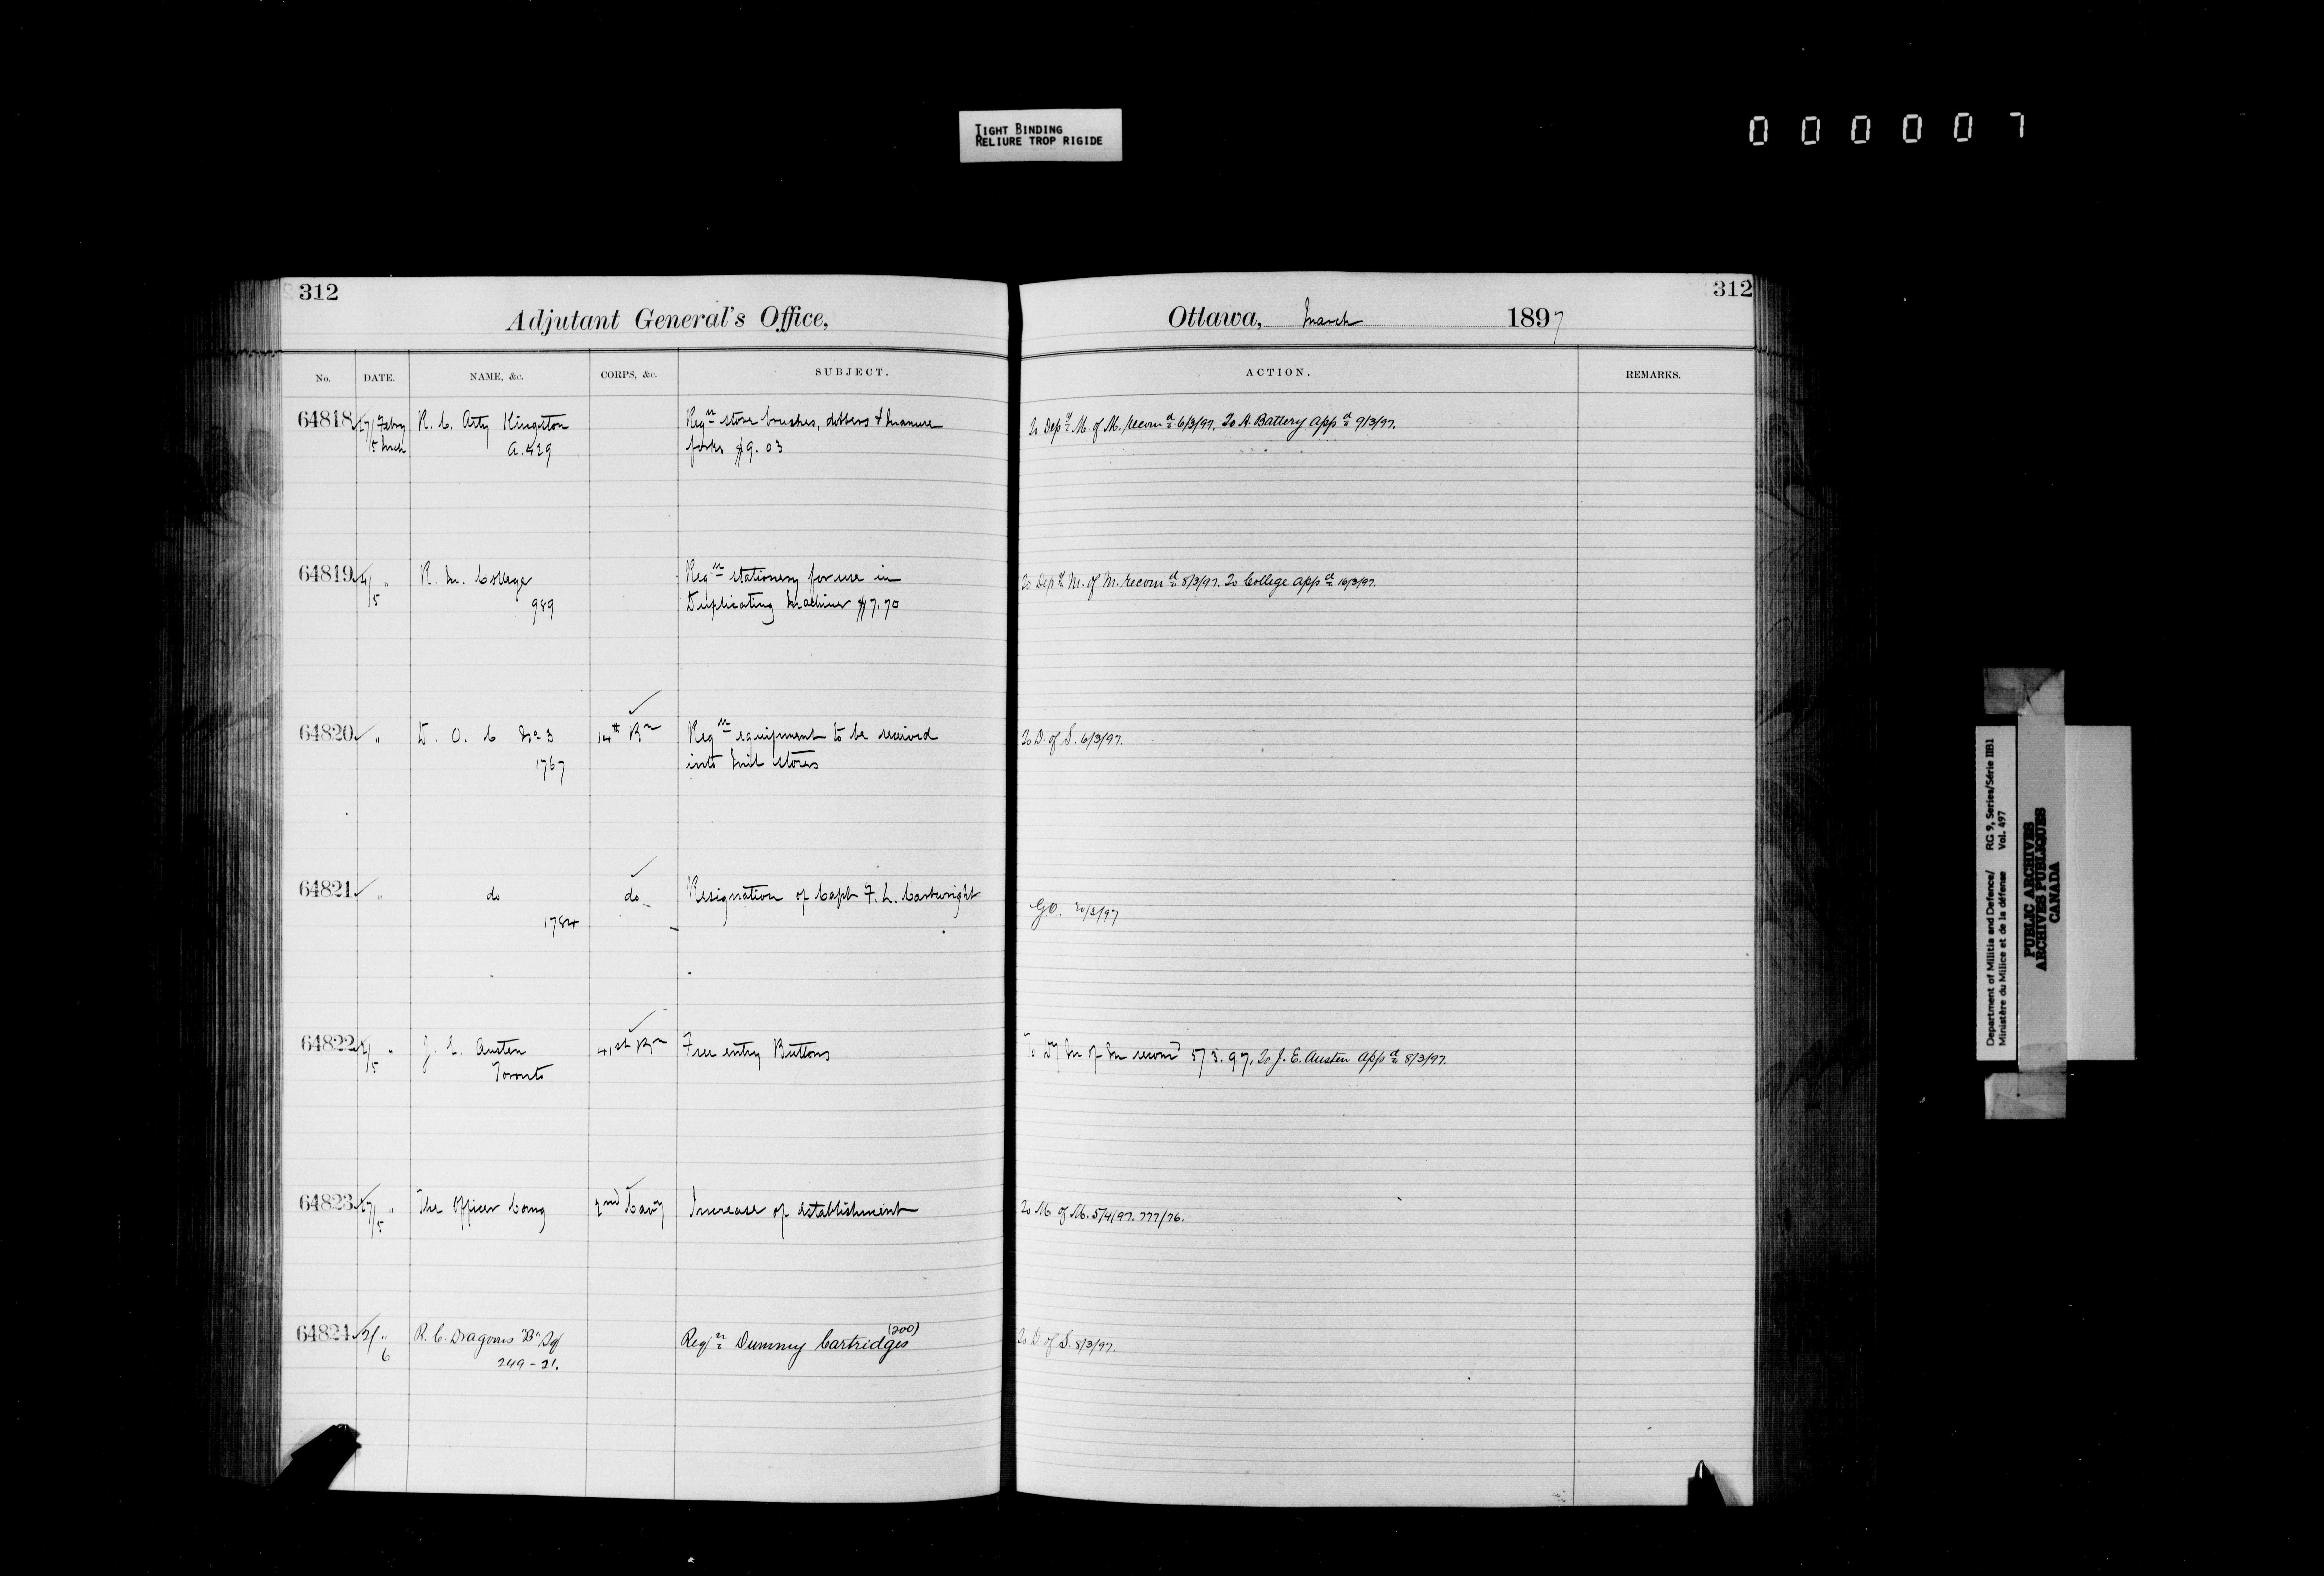 TIGHT BINDING
RELIURE TROP RIGIDE
000007
312
Adjutant General's Office,
No. DATE. NAME, &c. CORPS, &c. SUBJECT.
64818 27/ Febry R. C. Arty Kingston Reqn stove brushes, dobbers & manure
5 Mch A. 529 forks $9.03
64819 4/ " R. M. College Reqn stationery for use in
5 989 Duplicating Machine $7.70
64820 " D. O. C No 3 14th Bn Reqn equipment to be received
1767 into Mil stores
64821 " do do Resignation of Capt F. L. Cartwright
1784
64822 " J. E. Austen 41st Bn Free entry Buttons
5 Toronto
64823 27/ " The Officer Comg 2nd Cavy Increase of establishment
5
64824 " R. C. Dragoons "B" Sq Reqn Dummy Cartridges (200)
6 249-21.
312
Ottawa, March 1897
ACTION. REMARKS.
To Depy M. of M. recomd 6/3/97. To A. Battery appd 9/3/97.
To Depy M. of M. recomd 8/3/97. To College appd 16/3/97.
To D. of S. 6/3/97.
G.O. 20/3/97
To Dy M of M recomd 5/3.97. To J. E. Austen appd 8/3/97.
To M. of M. 5/4/97. 777/76.
To D. of S. 8/3/97.
Department of Militia and Defence/ RG 9, Series/Série IIB1
Ministère du Milice et de la défense Vol. 497
PUBLIC ARCHIVES
ARCHIVES PUBLIQUES
CANADA